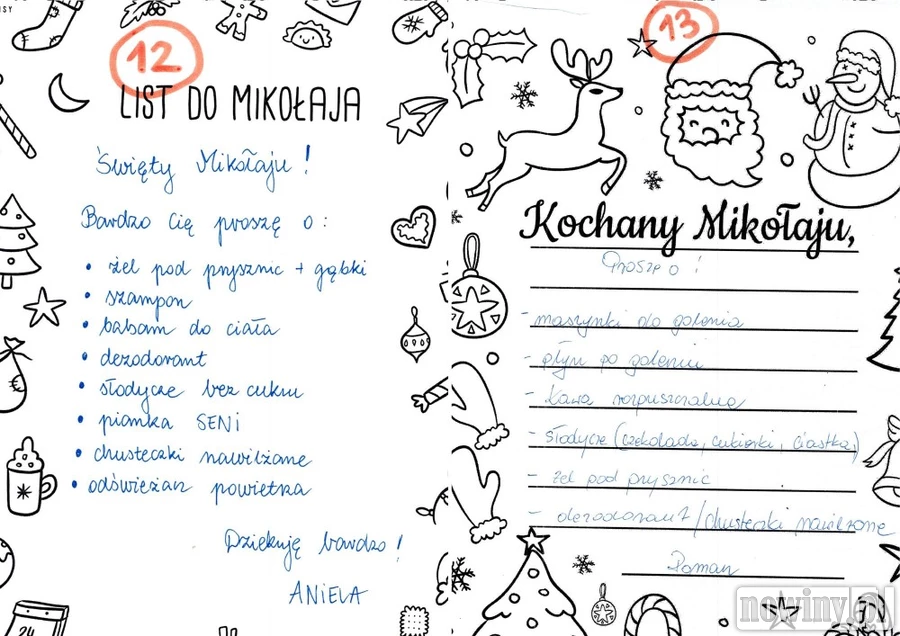 12
LIST DO MIKOŁAJA
Święty Mikołaju!
Bardzo Cię proszę o:
• żel pod prysznic + gąbki
• szampon
• balsam do ciała
• dezodorant
• słodycze bez cukru
• pianka SENI
• chusteczki nawilżane
• odświeżacz powietrza
Dziękuję bardzo!
ANIELA
13
Kochany Mikołaju,
Proszę o!
- maszynki do golenia
- płyn po goleniu
- kawa rozpuszczalna
- słodycze (czekolada, cukierki, ciastka)
- żel pod prysznic
- dezodorant / chusteczki nawilżone
Roman
24
nowiny.pl